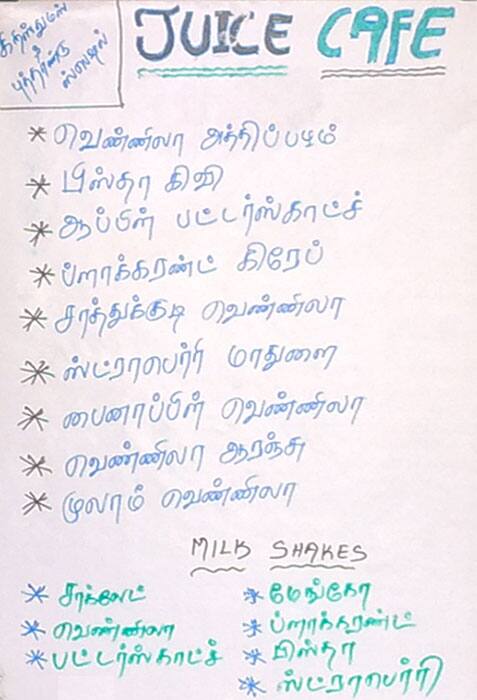 கிறிஸ்துமஸ்
&
புத்தாண்டு
ஸ்பெஷல்
JUICE CAFE
* வெண்ணிலா அத்திப்பழம்
* பிஸ்தா கிவி
* ஆப்பிள் பட்டர்ஸ்காட்ச்
* ப்ளாக்கரண்ட் கிரேப்
* சாத்துக்குடி வெண்ணிலா
* ஸ்ட்ராபெர்ரி மாதுளை
* பைனாப்பிள் வெண்ணிலா
* வெண்ணிலா ஆரஞ்சு
* முலாம் வெண்ணிலா
MILK SHAKES
* சாக்லேட்
* வெண்ணிலா
* பட்டர்ஸ்காட்ச்
* மேங்கோ
* ப்ளாக்கரண்ட்
* பிஸ்தா
* ஸ்ட்ராபெர்ரி